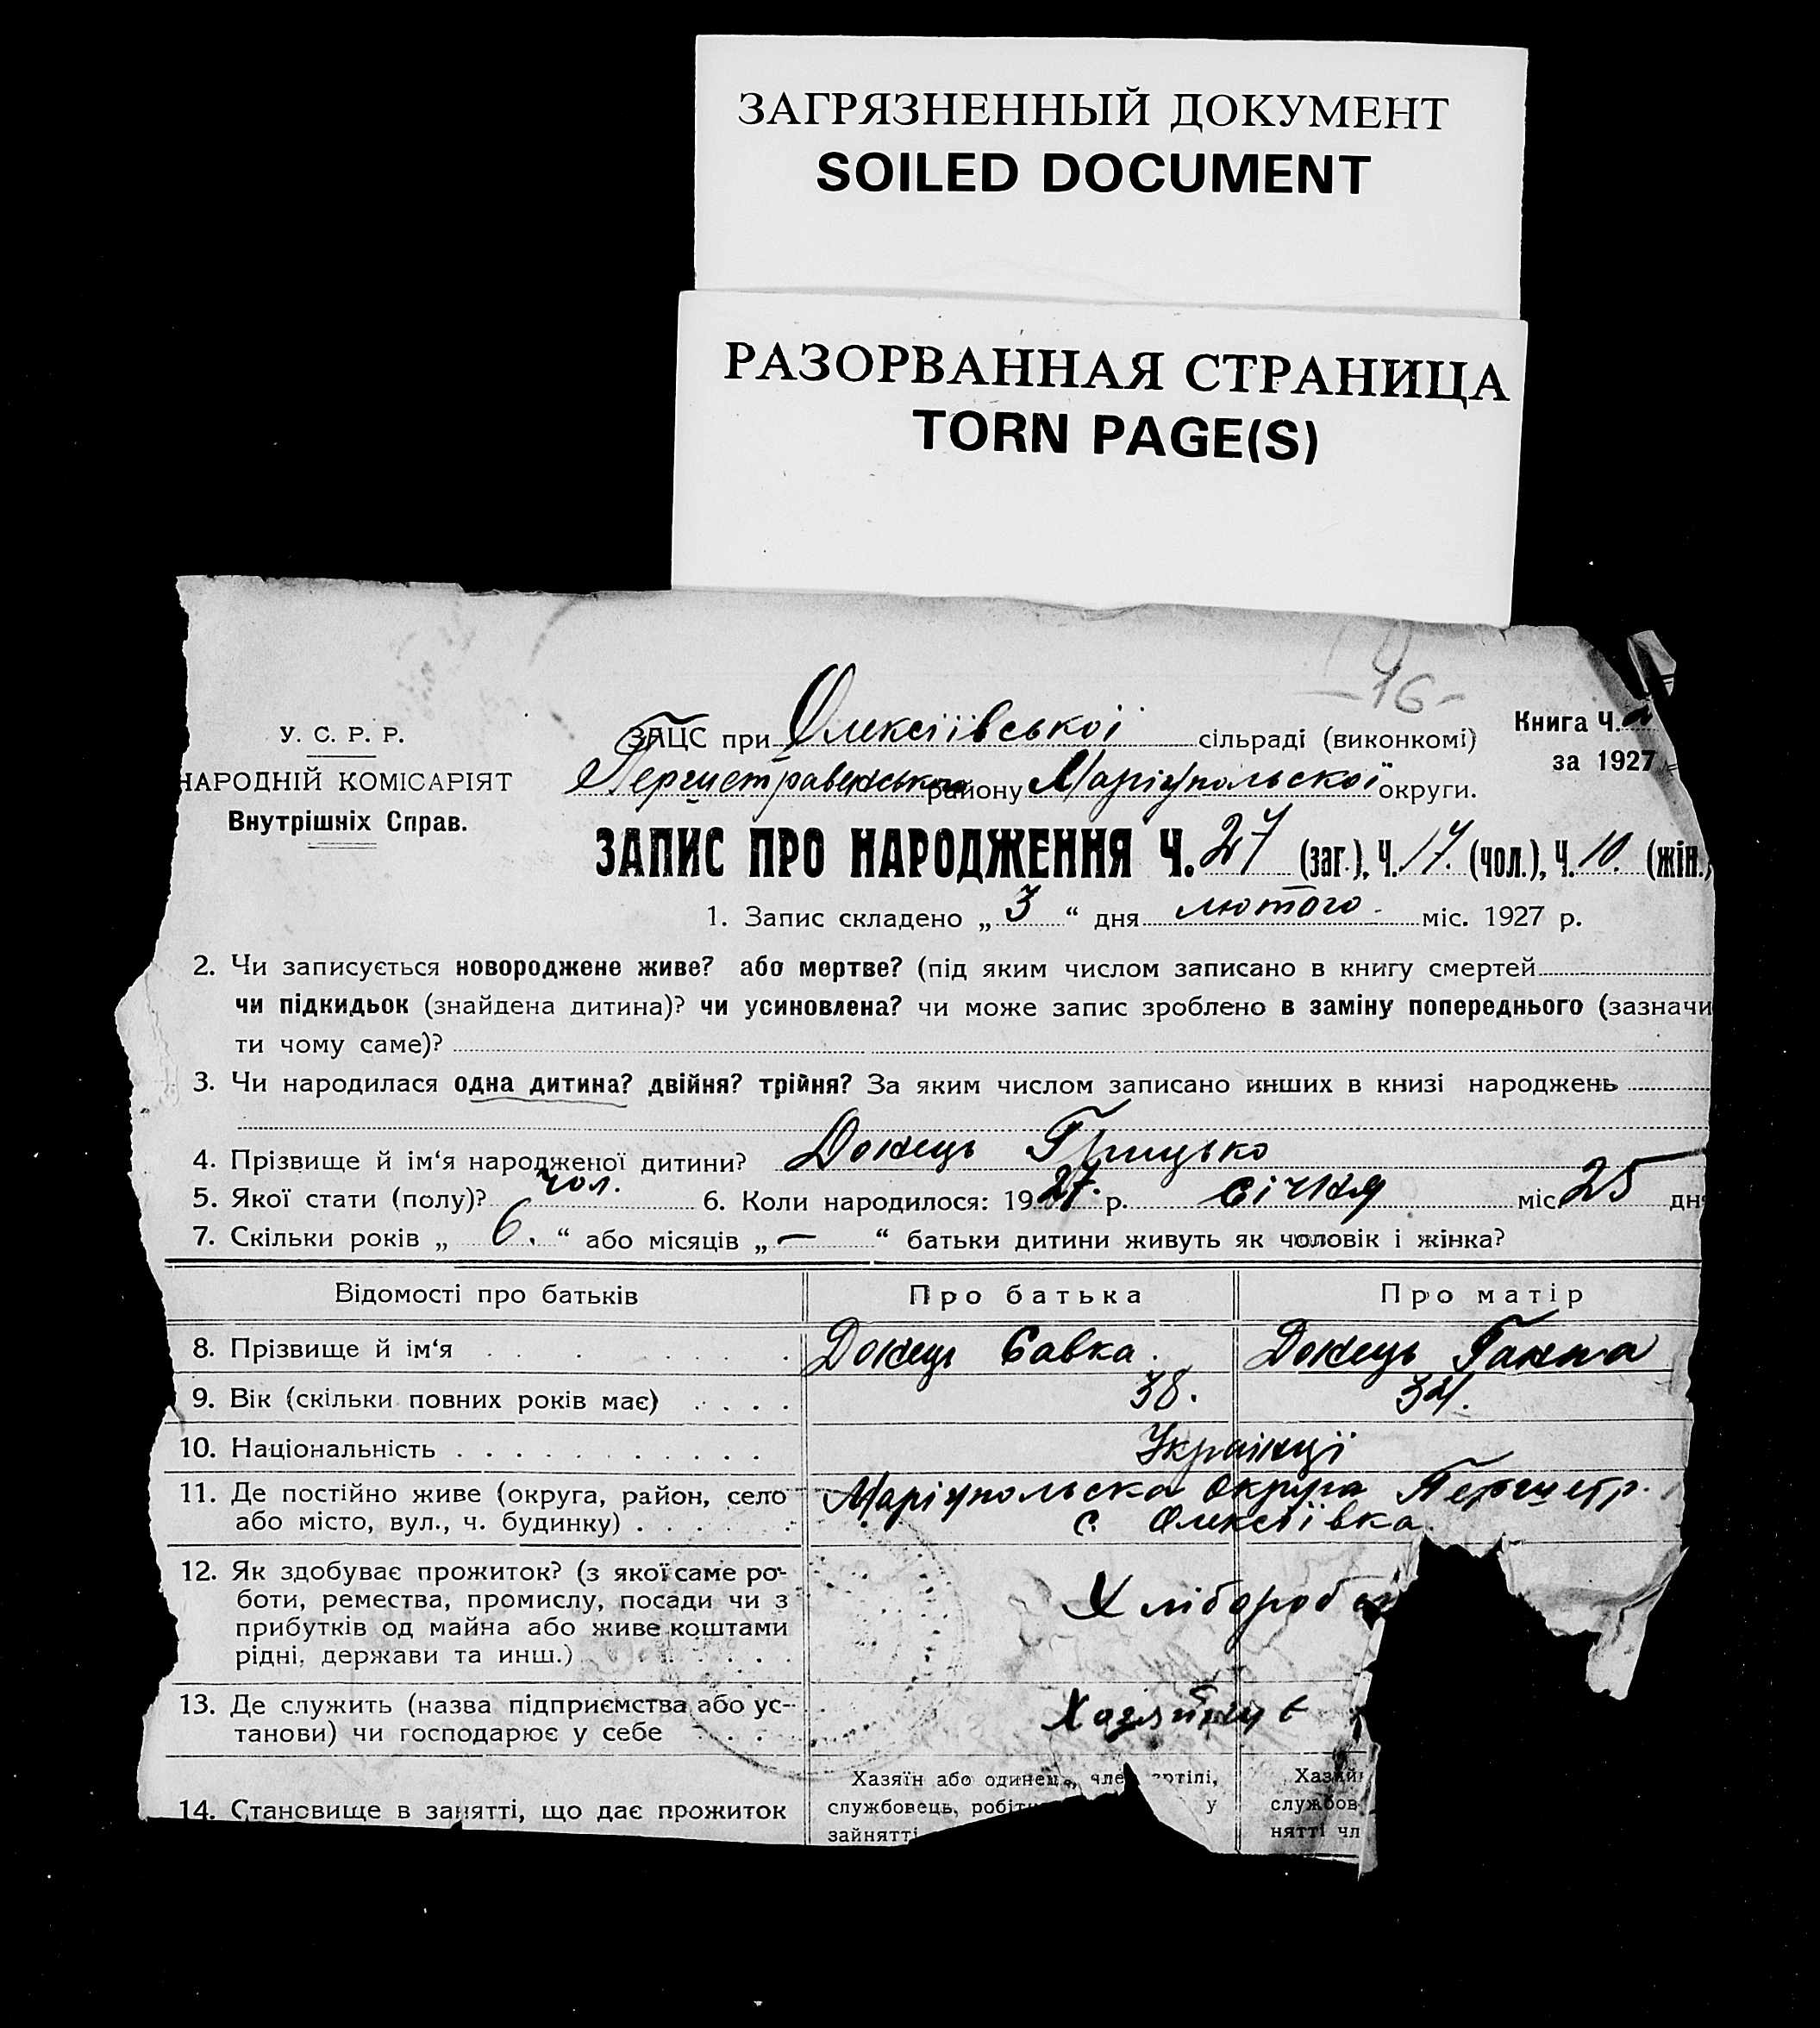 ЗАГРЯЗНЕННЫЙ ДОКУМЕНТ
SOILED DOCUMENT
РАЗОРВАННАЯ СТРАНИЦА
TORN PAGE(S)
-16-
У. С. Р. Р.
НАРОДНІЙ КОМІСАРІЯТ
Внутрішніх Справ.
ЗАЦС при Олексіївської сільраді (виконкомі)
Книга Ч. 2
за 1927
району Маріупольської округи.
ЗАПИС ПРО НАРОДЖЕННЯ Ч. 27 (заг.), Ч. 17. (чол.), Ч. 10. (жін.)
1. Запис складено „ 3 “ дня лютого міс. 1927 р.
2. Чи записується новороджене живе? або мертве? (під яким числом записано в книгу смертей
чи підкидьок (знайдена дитина)? чи усиновлена? чи може запис зроблено в заміну попереднього (зазначи
ти чому саме)?
3. Чи народилася одна дитина? двійня? трійня? За яким числом записано инших в книзі народжень
4. Прізвище й ім‘я народженої дитини? Донець Грицько
5. Якої стати (полу)? чол. 6. Коли народилося: 1927. р. січня міс. 25 дня
7. Скільки років „ 6. “ або місяців „ — “ батьки дитини живуть як чоловік і жінка?
Відомості про батьків Про батька Про матір
8. Прізвище й ім‘я Донець Савка. Донець Ганна
9. Вік (скільки повних років має) 38. 34.
10. Національність Українці
11. Де постійно живе (округа, район, село Маріупольска округа Першетр.
або місто, вул., ч. будинку) с. Олексіївка
12. Як здобуває прожиток? (з якої саме ро-
боти, ремества, промислу, посади чи з
прибутків од майна або живе коштами
рідні, держави та инш.)
Хлібороби
13. Де служить (назва підприємства або ус-
танови) чи господарює у себе
Хазяйнує
14. Становище в занятті, що дає прожиток
Хазяїн або одинець, член артілі,
службовець, робітн у
зайнятті
Хазяїн
службов
нятті чл